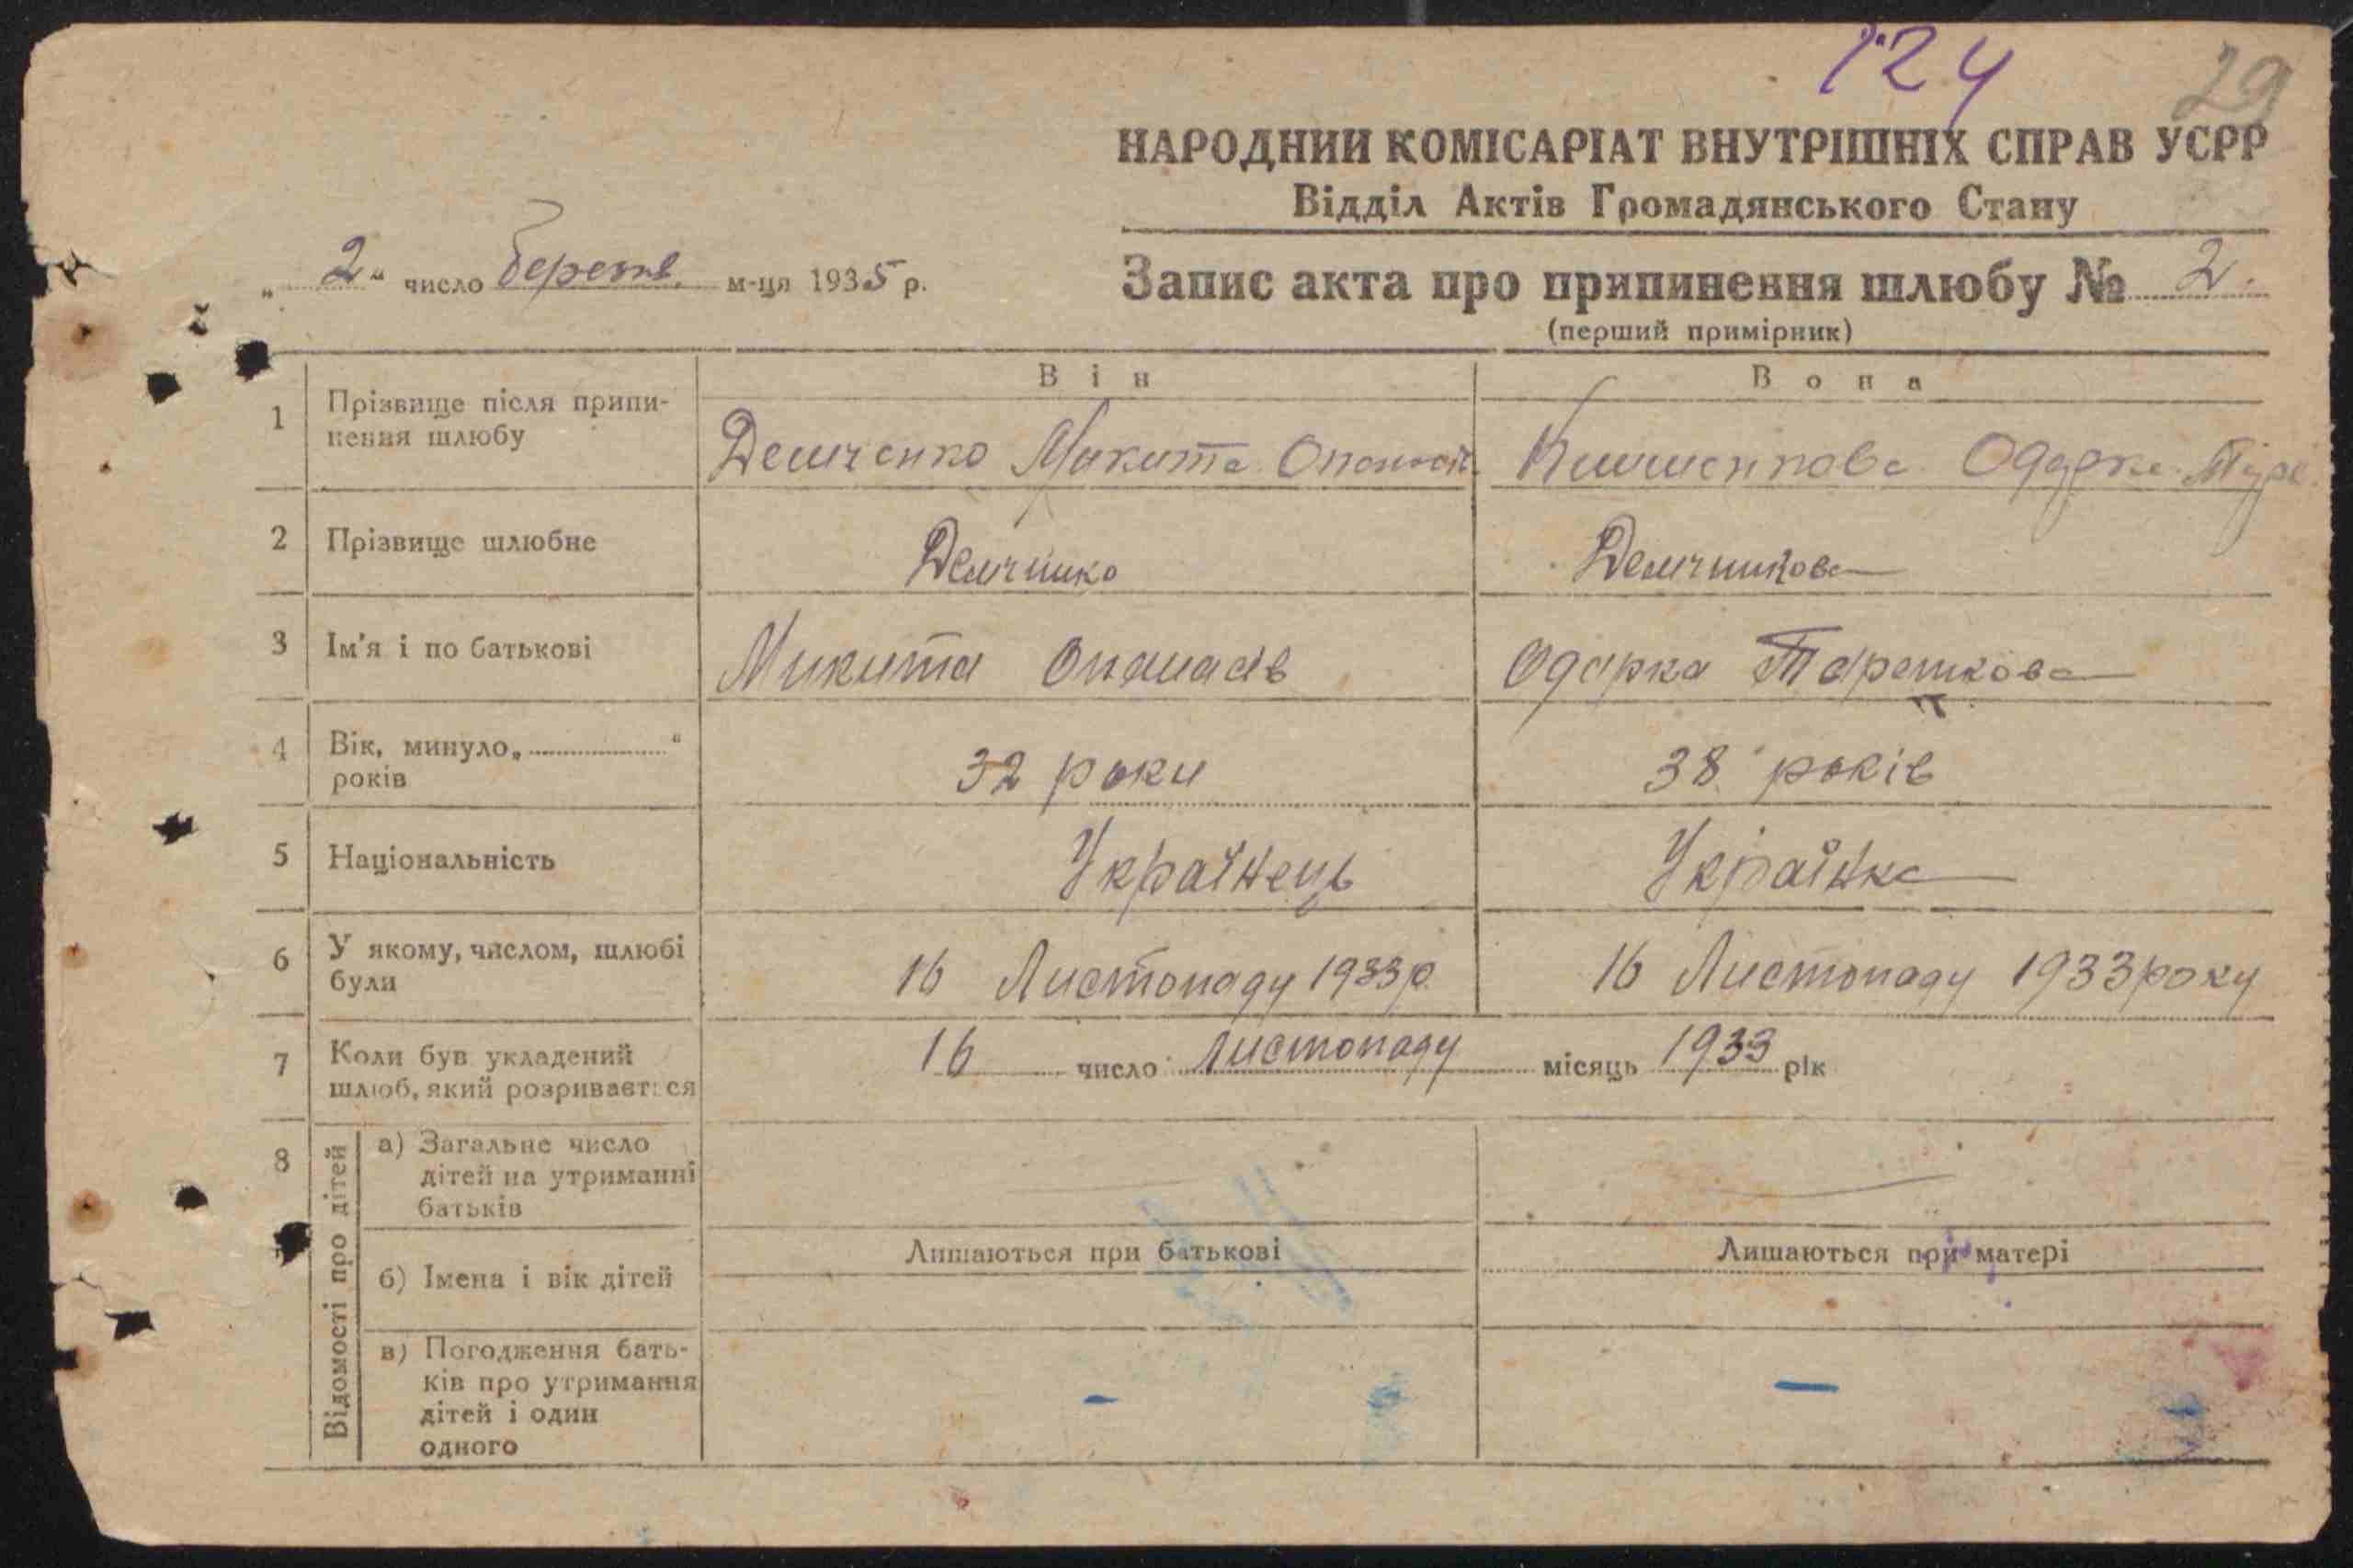 124 29
НАРОДНИЙ КОМІСАРІАТ ВНУТРІШНІХ СПРАВ УСРР
Відділ Актів Громадянського Стану
„ 2 “ число м-ця 1935 р.
Запис акта про припинення шлюбу № 2.
(перший примірник)
Він Вона
1 Прізвище після припи-
нення шлюбу
Демченко Микита Одарка
2 Прізвище шлюбне
Демченко Демченкова
3 Ім'я і по батькові
Микита Опанасів Одарка
4 Вік, минуло „ “
років
32 роки 38 років
5 Національність
Українець Українка
6 У якому, числом, шлюбі
були
16 Листопаду 1933 р. 16 Листопаду 1933 року
7 Коли був укладений
шлюб, який розривається
16 число Листопаду місяць 1933 рік
8 Відомості про дітей
а) Загальне число
дітей на утриманні
батьків
б) Імена і вік дітей
Лишаються при батькові Лишаються при матері
в) Погодження бать-
ків про утримання
дітей і один
одного